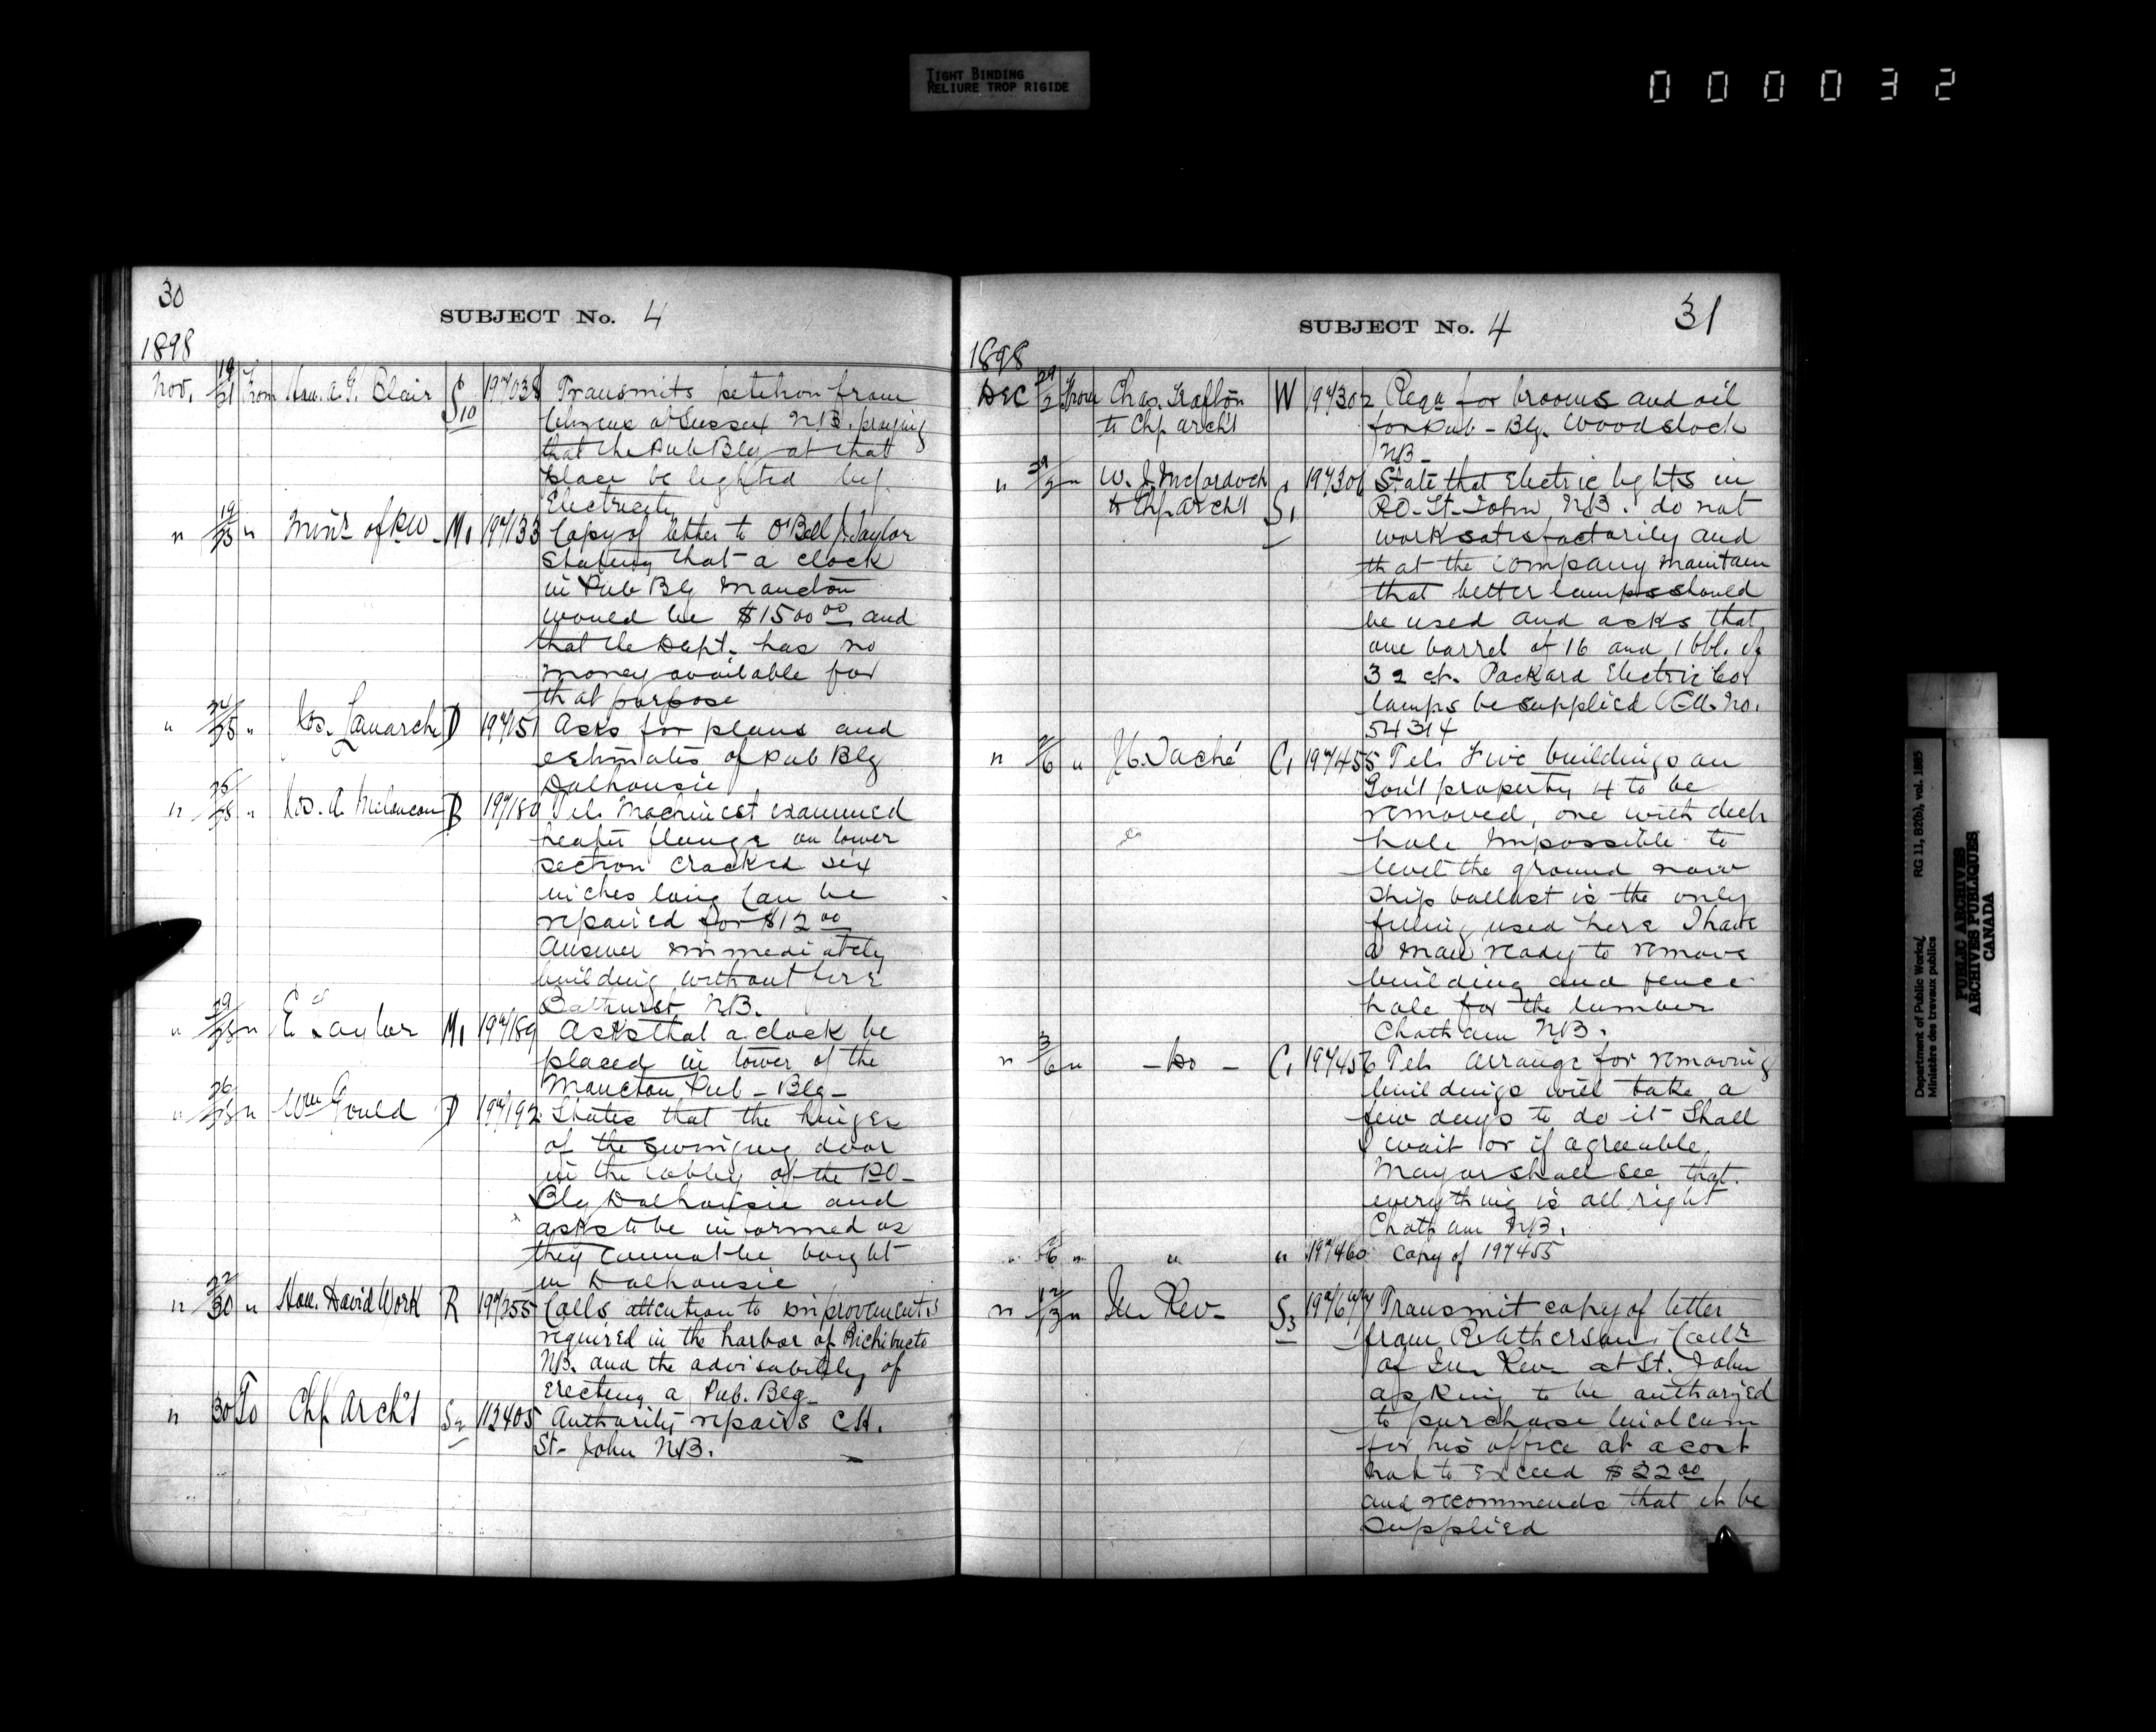 TIGHT BINDING
RELIURE TROP RIGIDE
000032
30
SUBJECT No. 4
1898
Nov. 19/21 From Hon. A. G. Blair S10 197038 Transmits petition from
Citizens of Sussex N.B. praying
that the Pub Blg at that
place be lighted by
Electricity
" 19/25 " Minr of P.W. M1 197133 Copy of letter to
stating that a clock
in Pub Blg Moncton
would be $1500 00 and
that the Dept. has no
money available for
that purpose
" 24/25 " Jos. Lamarche D 197151 Asks for plans and
estimates of Pub Blg
Dalhousie
" 26/28 " Jos. A. Melancon B 197180 Tel. Machinist examined
heater flange on lower
section cracked six
inches long Can be
repaired for $12 00
Answer immediately
building without fire
Bathurst N.B.
" 29/28 " E Taylor M1 197189 Asks that a clock be
placed in tower of the
Moncton Pub - Blg -
" 26/28 " Wm Gould D 197192 States that the hinges
of the swinging door
in the lobby of the P.O -
Blg Dalhousie and
asks to be informed as
they cannot be bought
in Dalhousie
" 22/30 " Hon. David Work R 197255 Calls attention to improvements
required in the harbor of Richibucto
N.B. and the advisability of
Erecting a Pub. Blg
" 30 To Chf Archt S2 112405 Authority repairs C.H.
St- John N.B.
31
SUBJECT No. 4
1898
DEC 29/2 From Chas. Grafton W 197302 Reqn for brooms and oil
to Chf Archt for Pub - Blg. Woodstock
NB -
" 29/2 " W. J. McCordock S1 197306 State that Electric lights in
to Chf Archt P.O. St. John N.B. do not
work satisfactorily and
that the company maintain
that better lamps should
be used and asks that
one barrel of 16 and 1 bbl. of
32 cp. Packard Electric Cos
lamps be supplied No.
54314
" 2/6 " J.G. Taché C1 197455 Tel. Five buildings on
Gov't property 4 to be
removed, one with deep
hole Impossible to
level the ground now
ship ballast is the only
filling used here I have
a man ready to remove
building and fence
hole for the lumber
Chatham N.B.
" 3/6 " - Do - C1 197456 Tel. Arrange for removing
buildings will take a
few days to do it Shall
I wait or if agreeable
Mayor shall see that
everything is all right
Chatham N.B.
" 6 " " " 197460 Copy of 197455
" 12/13 " In Rev - S3 197677 Transmit copy of letter
from Collr
of In Rev at St. John
asking to be authorized
to purchase linoleum
for his office at a cost
not to exceed $22 00
and recommends that it be
supplied
Department of Public Works/ RG 11, B2(b), vol. 1885
Ministère des travaux publics
PUBLIC ARCHIVES
ARCHIVES PUBLIQUES
CANADA